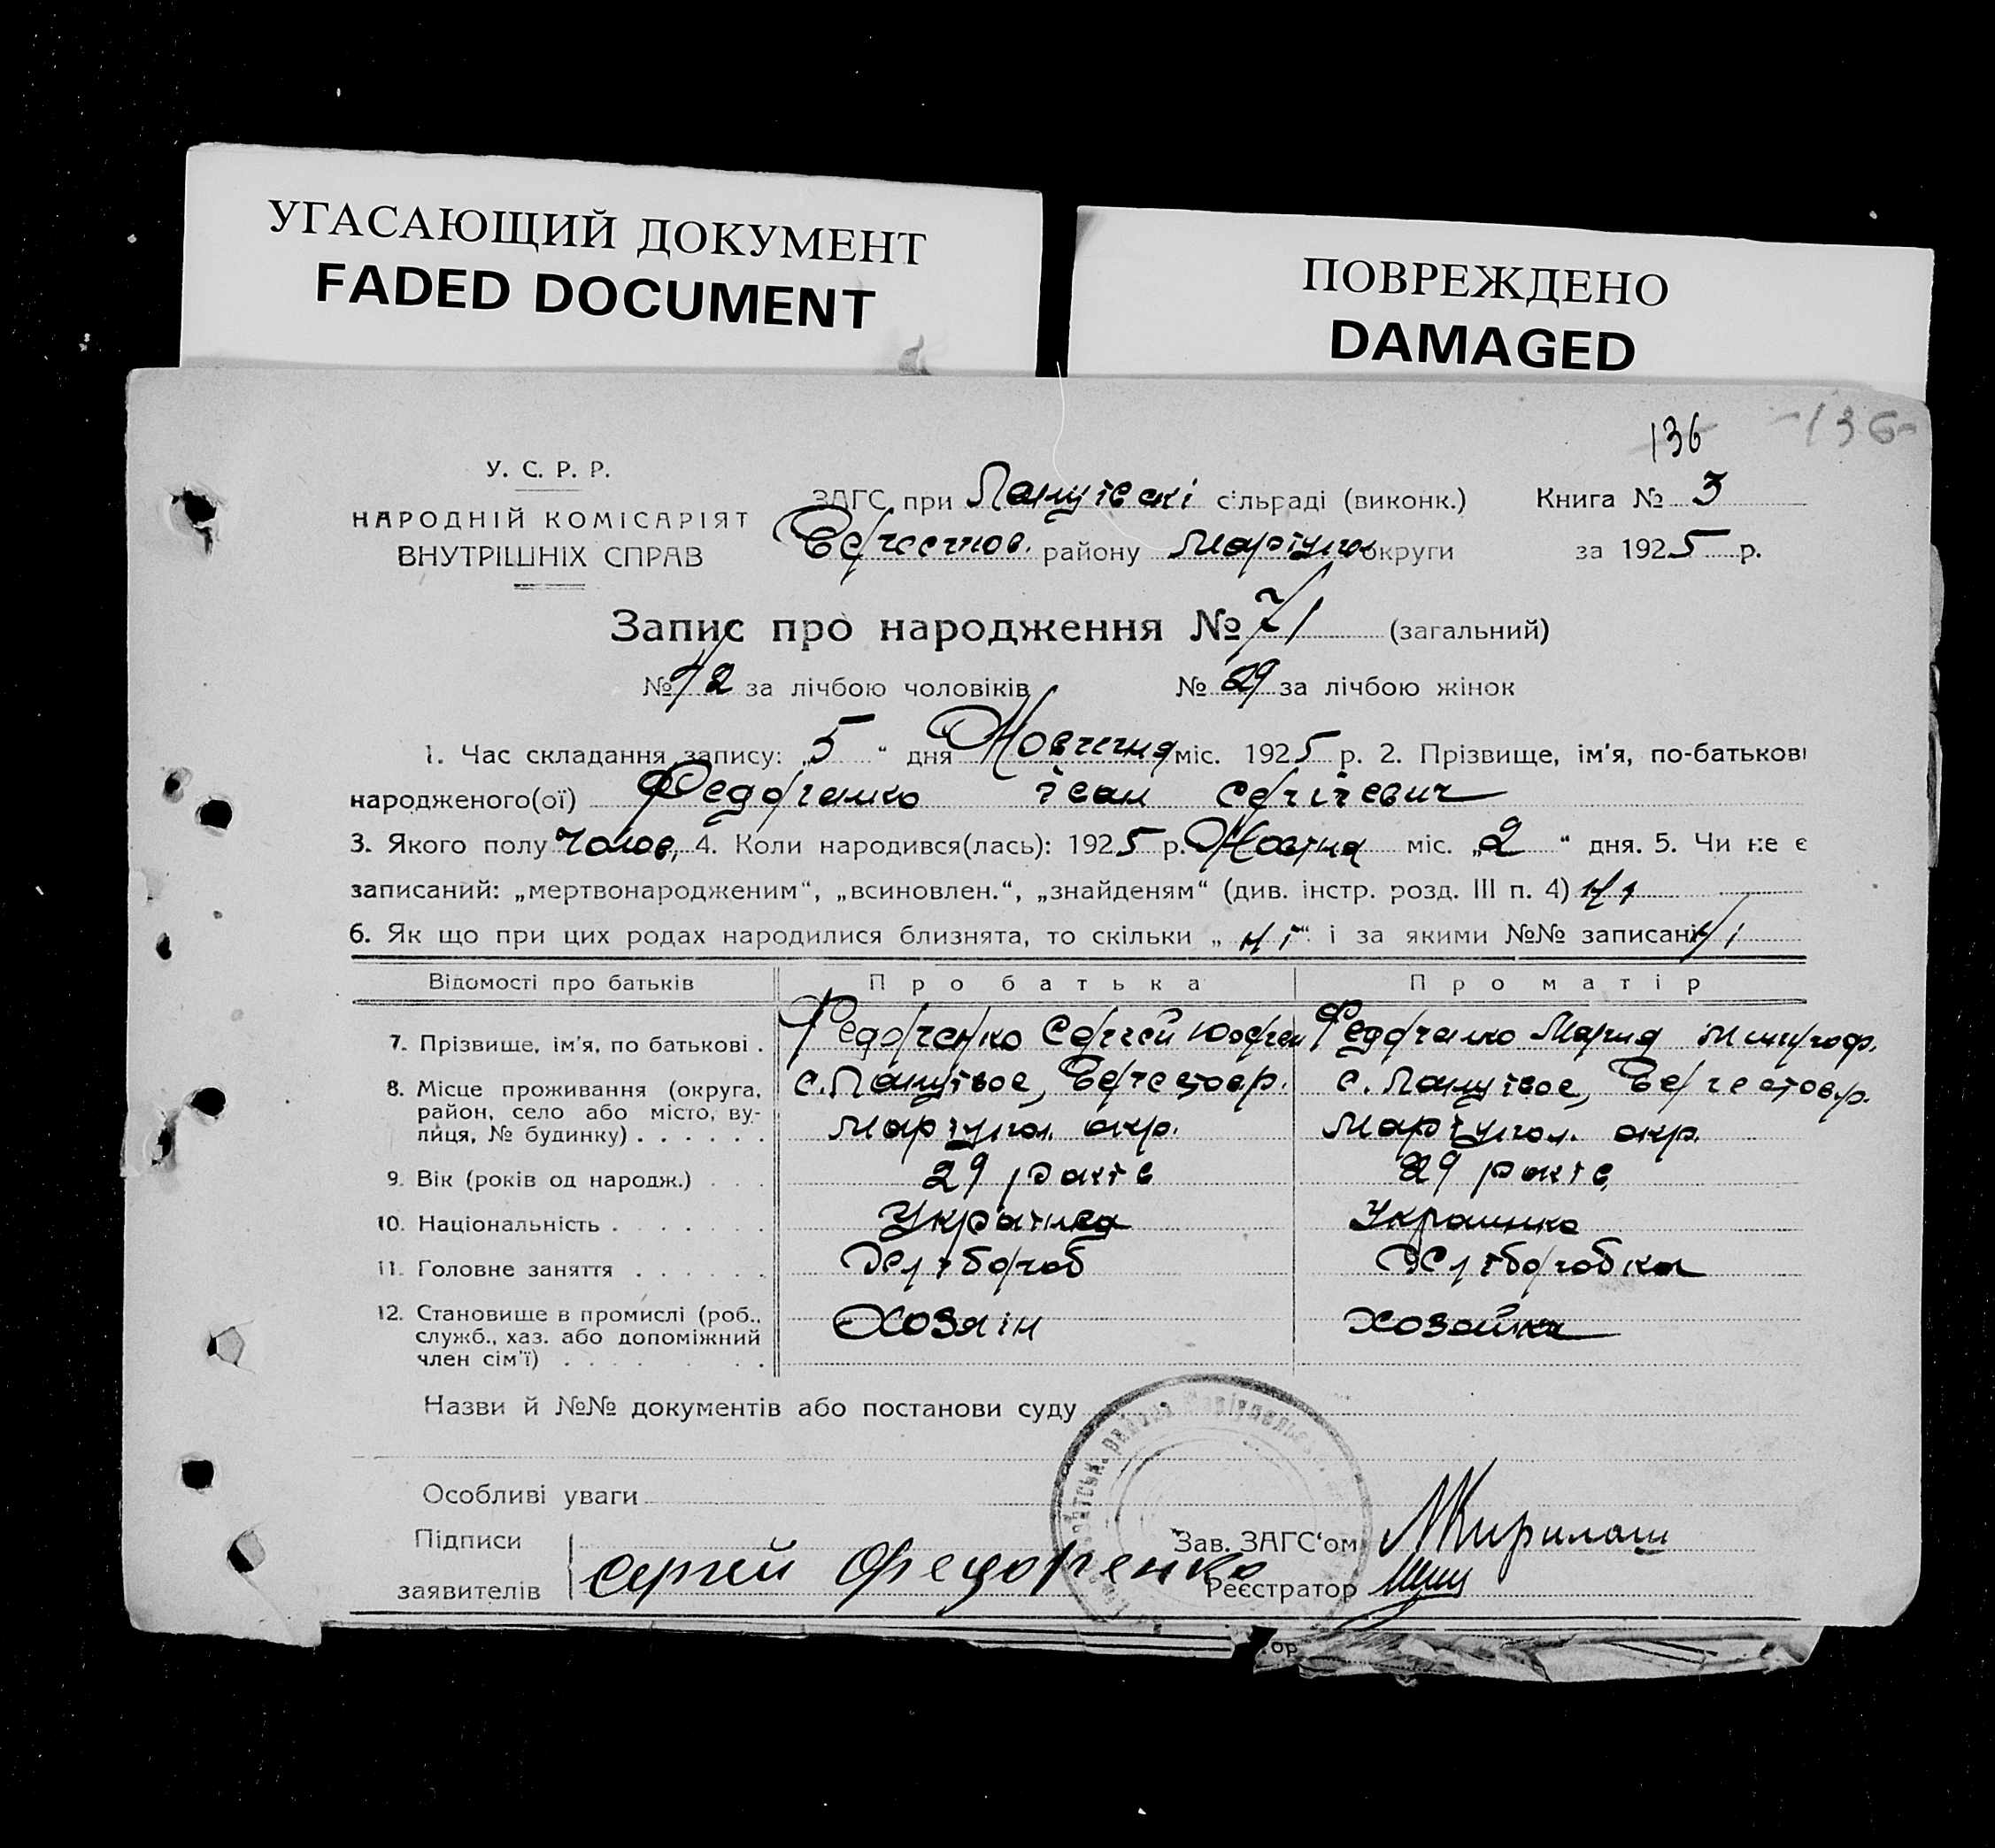 УГАСАЮЩИЙ ДОКУМЕНТ
FADED DOCUMENT
ПОВРЕЖДЕНО
DAMAGED
136 -136-
У. С. Р. Р.
НАРОДНІЙ КОМІСАРІЯТ
ВНУТРІШНІХ СПРАВ
ЗАГС при сільраді (виконк.) Книга № 3
району Маріупол округи за 1925 р.
Запис про народження № 71 (загальний)
№ 42 за лічбою чоловіків № 29 за лічбою жінок
1. Час складання запису: „5“ дня Жовтня міс. 1925 р. 2. Прізвище, ім'я, по-батькові
народженого(ої) Федорченко Іван Сергієвич
3. Якого полу Чолов. 4. Коли народився(лась): 1925 р. Жовтня міс. „2“ дня. 5. Чи не є
записаний: „мертвонародженим“, „всиновлен.“, „знайденям“ (див. інстр. розд. III п. 4) Ні
6. Як що при цих родах народилися близнята, то скільки „ні“ і за якими №№ записані ні
Відомості про батьків Про батька Про матір
7. Прізвище, ім'я, по батькові . Федорченко Сергей Федорченко Мария
8. Місце проживання (округа, район, село або місто, вулиця, № будинку) . . . . . .
Маріупол. окр. Маріупол. окр.
9. Вік (років од народж.) . . . 29 років 29 років
10. Національність . . . . . . Українец Украинка
11. Головне заняття . . . . . . Хлібороб Хліборобка
12. Становище в промислі (роб., служб., хаз. або допоміжний член сім'ї) . . . . . . . Хозяін Хозяйка
Назви й №№ документів або постанови суду
Особливі уваги
Підписи
заявителів Сергей Федоренко
Зав. ЗАГС'ом
Реєстратор